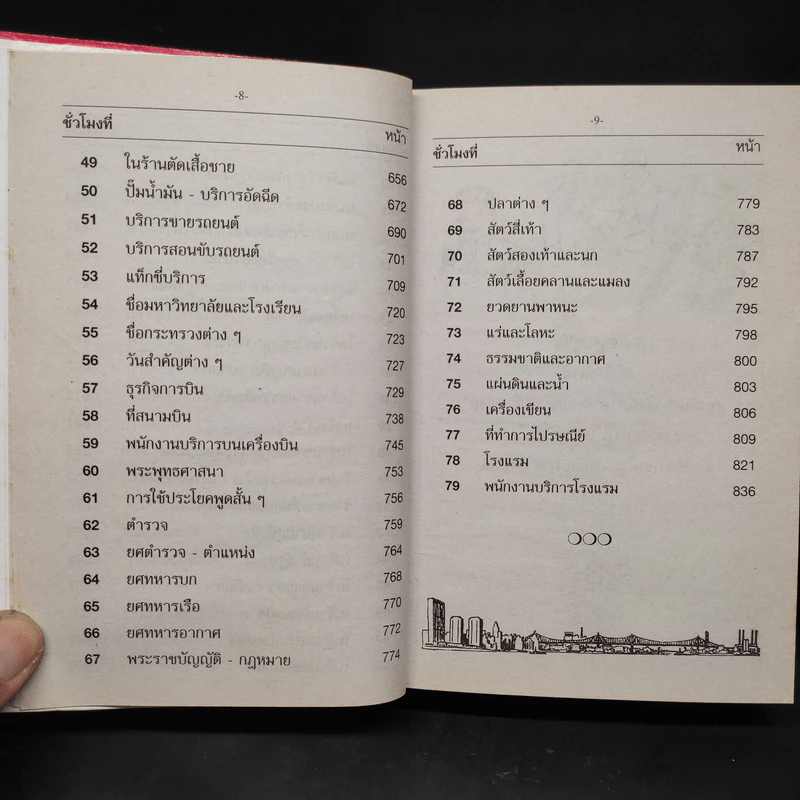 -8-
ชั่วโมงที่ หน้า
49 ในร้านตัดเสื้อชาย 656
50 ปั๊มน้ำมัน - บริการอัดฉีด 672
51 บริการขายรถยนต์ 690
52 บริการสอนขับรถยนต์ 701
53 แท็กซี่บริการ 709
54 ชื่อมหาวิทยาลัยและโรงเรียน 720
55 ชื่อกระทรวงต่าง ๆ 723
56 วันสำคัญต่าง ๆ 727
57 ธุรกิจการบิน 729
58 ที่สนามบิน 738
59 พนักงานบริการบนเครื่องบิน 745
60 พระพุทธศาสนา 753
61 การใช้ประโยคพูดสั้น ๆ 756
62 ตำรวจ 759
63 ยศตำรวจ - ตำแหน่ง 764
64 ยศทหารบก 768
65 ยศทหารเรือ 770
66 ยศทหารอากาศ 772
67 พระราชบัญญัติ - กฎหมาย 774
-9-
ชั่วโมงที่ หน้า
68 ปลาต่าง ๆ 779
69 สัตว์สี่เท้า 783
70 สัตว์สองเท้าและนก 787
71 สัตว์เลื้อยคลานและแมลง 792
72 ยวดยานพาหนะ 795
73 แร่และโลหะ 798
74 ธรรมชาติและอากาศ 800
75 แผ่นดินและน้ำ 803
76 เครื่องเขียน 806
77 ที่ทำการไปรษณีย์ 809
78 โรงแรม 821
79 พนักงานบริการโรงแรม 836